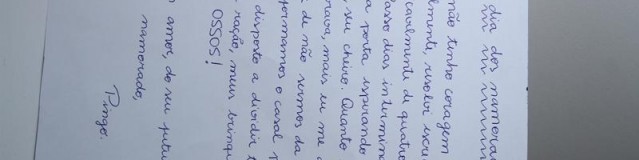 dia dos namora
não tenho coragem
lmente, resolvi escre
cavalmente de quatro
asso dias intermin
a porta espirando
, seu cheiro. Quanto
rava, mais eu me
de não sermos da
formamos o casal p
disposto a dividir t
ração, meus brinqu
OSSOS!
amor, do seu futu
namorado,
Pingo.